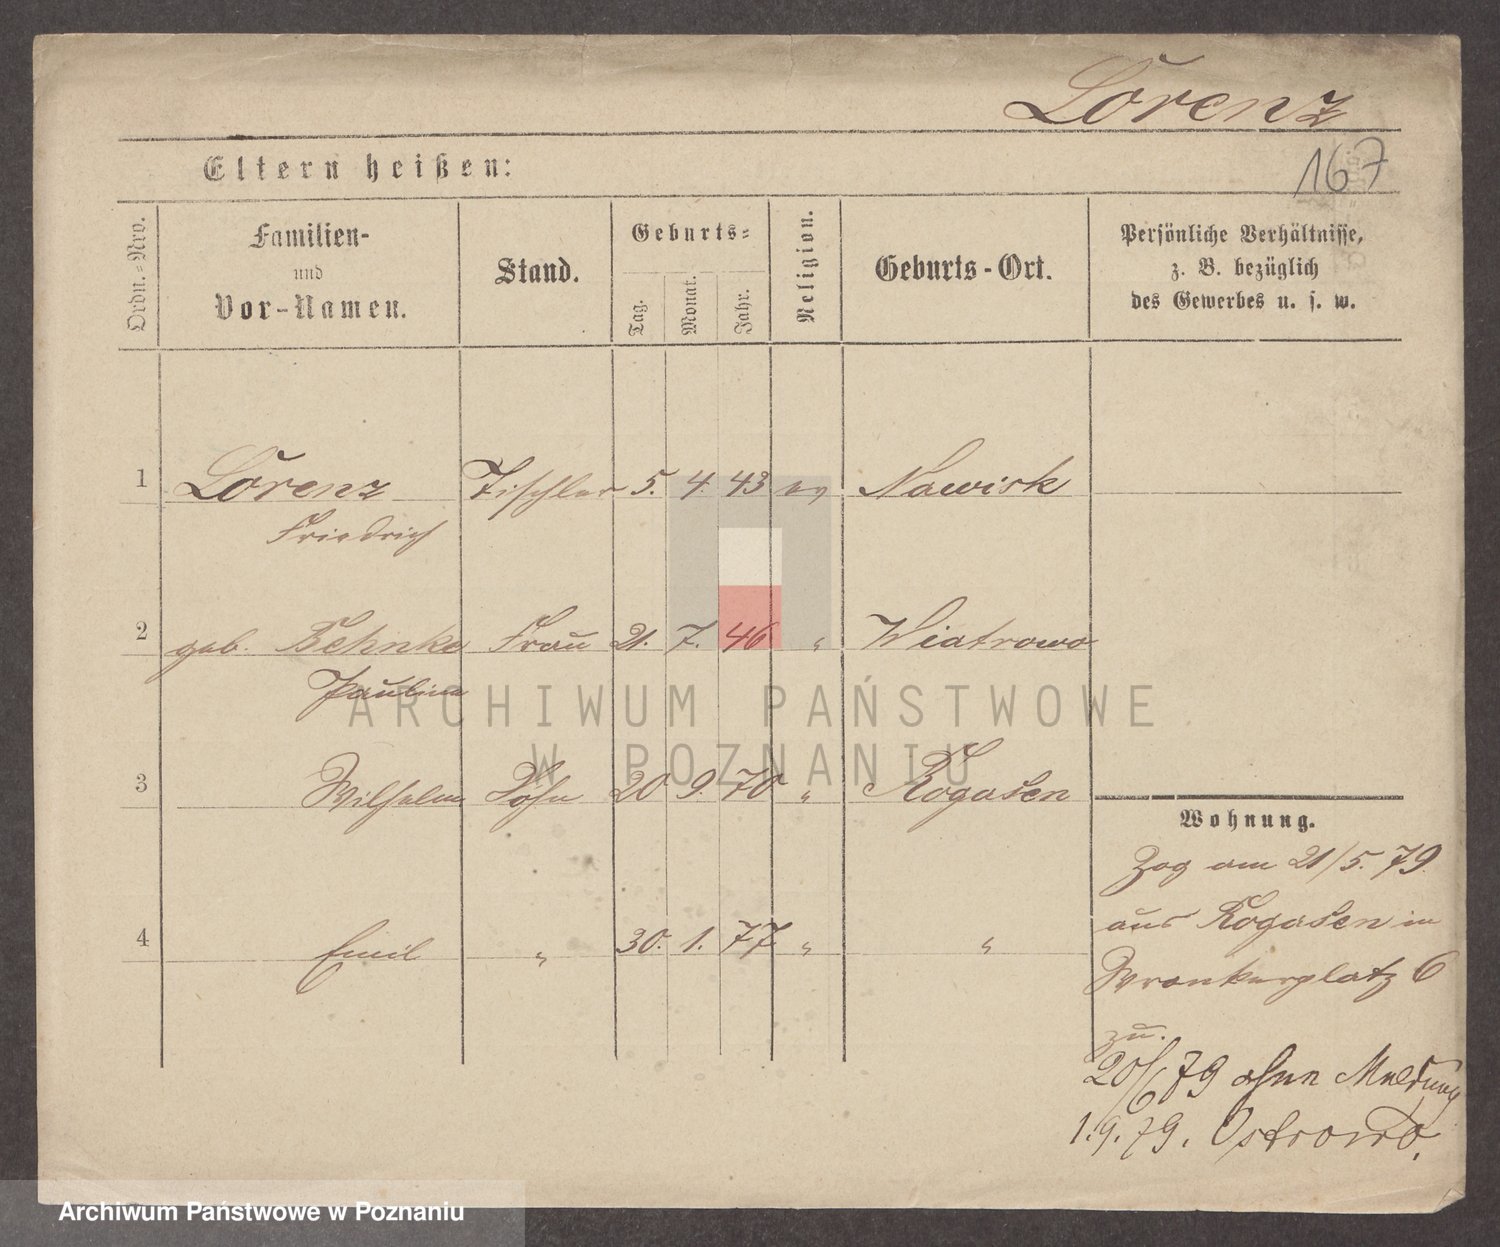 Lorenz
167
Eltern heißen:
Ordn.=Nro.
Familien-
und
Vor-Namen.
Stand.
Geburts=
Tag.
Monat.
Jahr.
Religion.
Geburts-Ort.
Persönliche Verhältnisse,
z. B. bezüglich
des Gewerbes u. s. w.
1 Lorenz Tischler 5. 4. 43 ev
Friedrich
2 geb. Behnke Frau 21. 7. 46 " Wiatrowo
Pauline
ARCHIWUM PAŃSTWOWE
W POZNANIU
3 Wilhelm Sohn 20 9. 70 " Rogasen
Wohnung.
Zog am 21/5. 79.
aus Rogasen in
4 Emil " 30. 1. 77 " "
Wronkerplatz 6
zu.
20/6 79 ohne Meldung
1. 9. 79. Ostrowo.
Archiwum Państwowe w Poznaniu